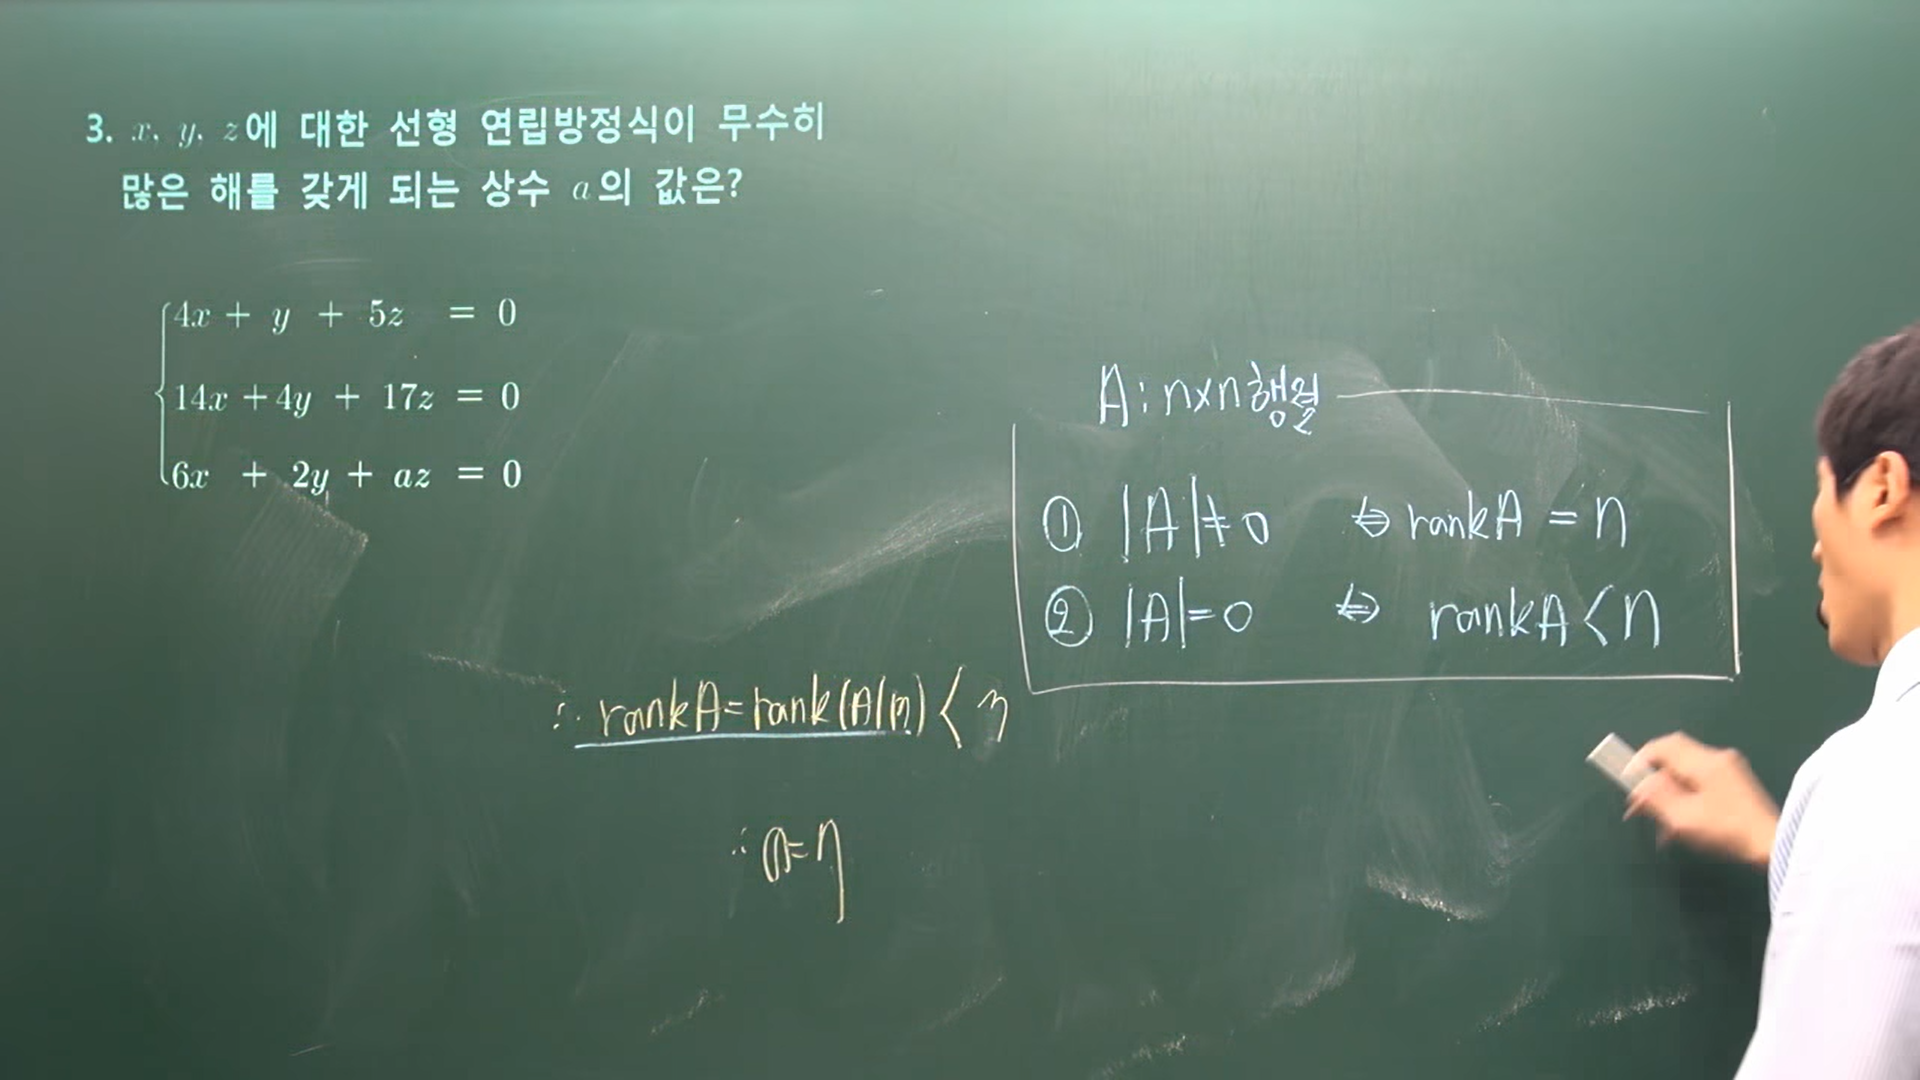 3. x, y, z에 대한 선형 연립방정식이 무수히
많은 해를 갖게 되는 상수 a의 값은?
4x + y + 5z = 0
14x + 4y + 17z = 0
6x + 2y + az = 0
A : n×n 행렬
① |A| ≠ 0 ⇔ rankA = n
② |A| = 0 ⇔ rankA < n
∴ rankA = rank(A|B) < 3
∴ a = 7